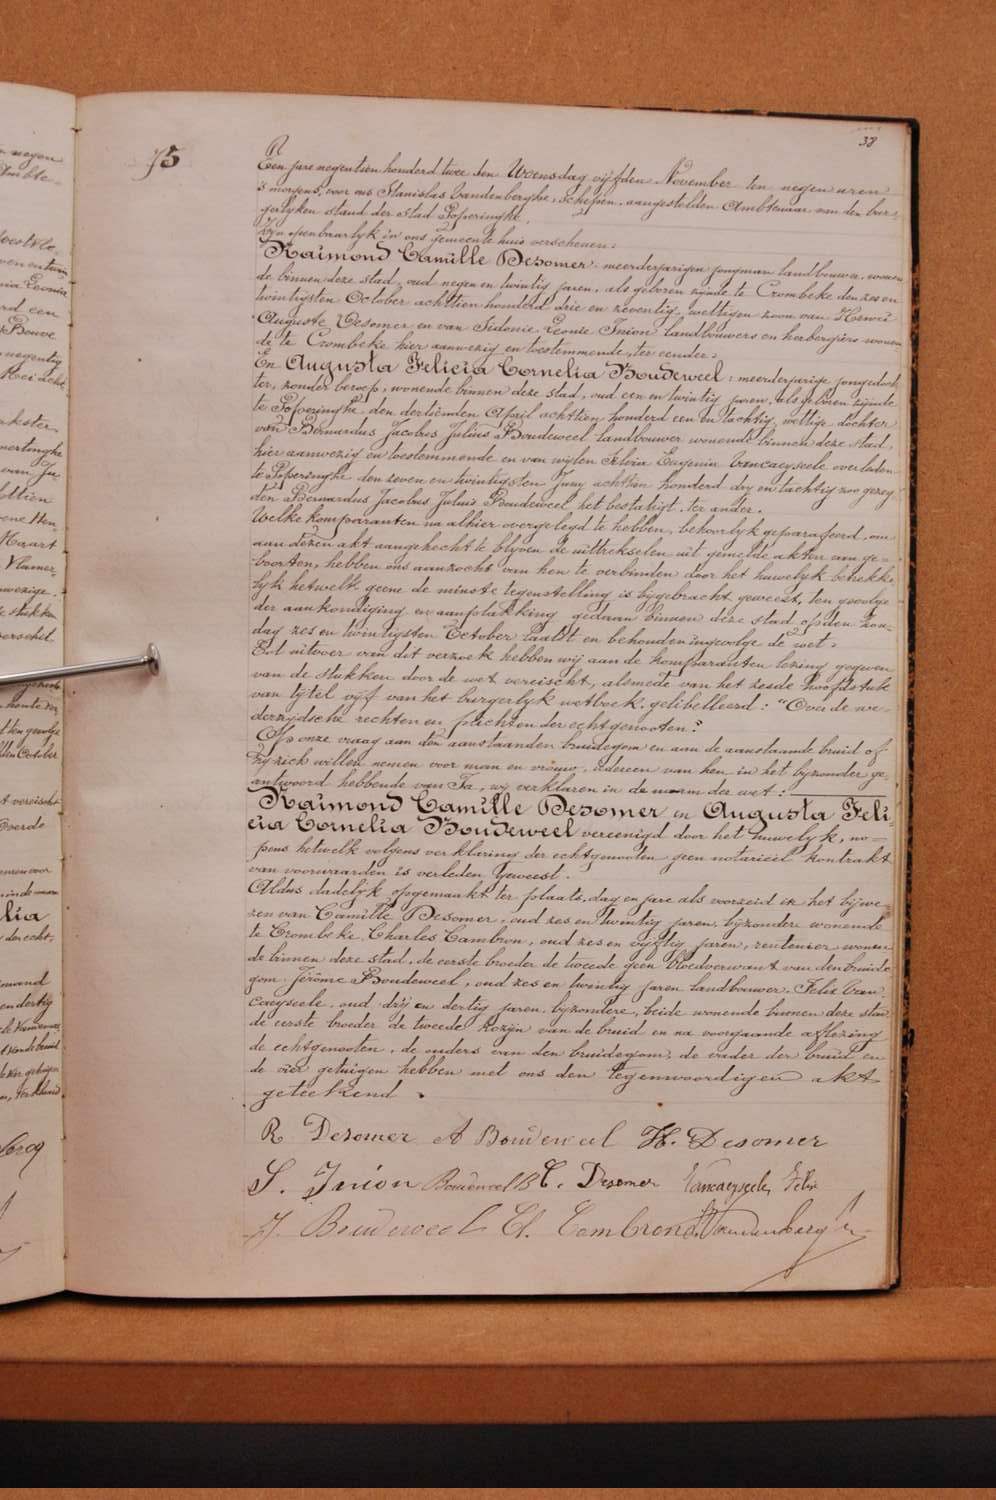 38
75
Een jare negentien honderd twee den Woensdag vijfden November ten negen uren
's morgens, voor ons Stanislas Vandenberghe, Schepen, aangestelden Ambtenaar van den bur-
gerlyken stand der Stad Poperinghe,
Zyn openbaarlyk in ons gemeentehuis verschenen:
Raimond Camille Desomer, meerderjarigen jongman landbouwer, wonen
de binnen deze stad, oud negen en twintig jaren, als geboren zijnde te Crombeke den zes en
twintigsten October achttien honderd drie en zeventig, wettigen zoon van Henri
Auguste Desomer en van Sidonie Leonie Inion landbouwers en herbergiers wonen
de te Crombeke hier aanwezig en toestemmende, ter eender.
En Augusta Felicia Cornelia Boudeweel: meerderjarige jongedoch
ter, zonder beroep, wonende binnen deze stad, oud een en twintig jaren, als geboren zijnde
te Poperinghe den dertienden April achttien honderd een en tachtig, wettige dochter
van Bernardus Jacobus Julius Boudeweel landbouwer wonende binnen deze stad,
hier aanwezig en toestemmende en van wijlen Silvia Eugenia Vancaeyseele overleden
te Poperinghe den zeven en twintigsten Juny achttien honderd dry en tachtig zoo gezeg
den Bernardus Jacobus Julius Boudeweel het bestatigt, ter ander.
Welke komparanten na alhier overgelegd te hebben, behoorlyk geparafeerd, om
aan dezen akt aangehecht te blyven de uittrekselen uit gemelde akten van ge-
boorten, hebben ons aanzocht van hen te verbinden door het huwelyk betrekke
lyk hetwelk geene de minste tegenstelling is bygebracht geweest, ten gevolge
der aankondiging en aanplakking gedaan binnen deze stad op den zon-
dag zes en twintigsten October laatst en behouden ingevolge de wet.
Tot uitvoer van dit verzoek hebben wij aan de komparanten lezing gegeven
van de stukken door de wet vereischt, alsmede van het zesde hoofdstuk
van tytel vyf van het burgerlyk wetboek, gelibelleerd: "Over de we-
derzydsche rechten en plichten der echtgenooten."
Op onze vraag aan den aanstaanden bruidegom en aan de aanstaande bruid of
zy zich willen nemen voor man en vrouw, iedereen van hen in het byzonder ge-
antwoord hebbende van Ja, wy verklaren in de naam der wet:
Raimond Camille Desomer en Augusta Feli-
cia Cornelia Boudeweel vereenigd door het huwelyk, no-
pens hetwelk volgens verklaring der echtgenooten geen notarieel kontrakt
van voorwaarden is verleden geweest.
Aldus dadelyk opgemaakt ter plaats, dag en jare als voorzeid in het bijwe-
zen van Camille Desomer, oud zes en twintig jaren, byzondere wonende
te Crombeke, Charles Cambron, oud zes en vyftig jaren, rentenier wonen
de binnen deze stad, de eerste broeder de tweede geen bloedverwant van den bruide
gom Jérôme Boudeweel, oud zes en twintig jaren landbouwer, Felix Van-
caeyseele, oud drij en dertig jaren, byzondere, beide wonende binnen deze stad
de eerste broeder de tweede kozyn van de bruid en na voorgaande aflezing
de echtgenooten, de ouders van den bruidegom, de vader der bruid en
de vier getuigen hebben met ons den tegenwoordigen akt
geteekend.
R Desomer A Boudeweel H. Desomer
S. Inion Boudeweel B C. Desomer Vancaeyseele Felix
J. Boudeweel Ch. Cambron S. Vandenberghe